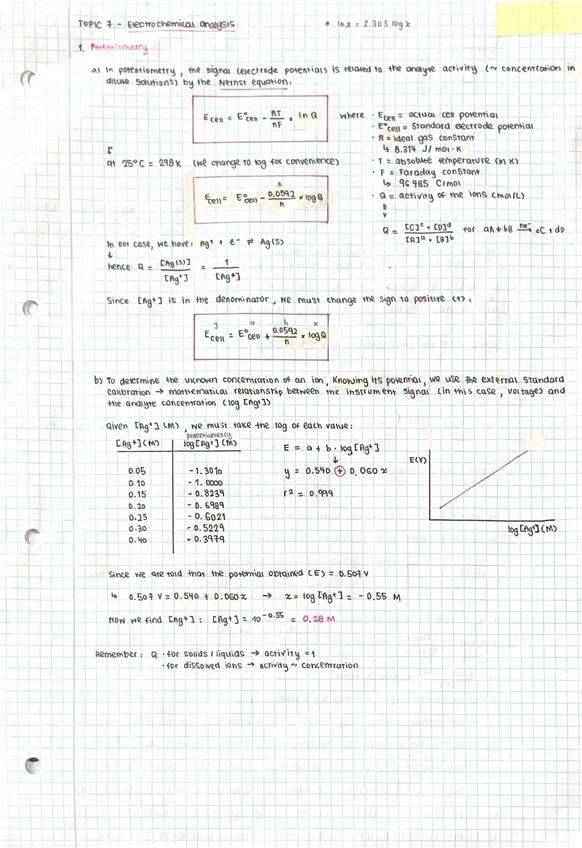 TOPIC 7 - Electrochemical analysis * ln x = 2.303 log x
1. Potentiometry
a) In potentiometry, the signal (electrode potential) is related to the analyte activity (~ concentration in
dilute solutions) by the Nernst equation:
E cell = E° cell - RT/nF · ln Q
where · E cell = actual cell potential
· E° cell = standard electrode potential
· R = ideal gas constant
↳ 8.314 J/mol·K
at 25°C = 298K (we change to log for convenience)
· T = absolute temperature (in K)
· F = Faraday constant
↳ 96 485 C/mol
E cell = E° cell - 0.0592/n × log Q
· Q = activity of the ions (mol/L)
Q = [C]ᶜ · [D]ᵈ / [A]ᵃ · [B]ᵇ for aA + bB ⇌ cC + dD
In our case, we have: Ag⁺ + e⁻ ⇌ Ag(s)
↓
hence Q = [Ag(s)] / [Ag⁺] = 1 / [Ag⁺]
Since [Ag⁺] is in the denominator, we must change the sign to positive (+):
y a b x
E cell = E° cell + 0.0592/n × log Q
b) To determine the uknown concentration of an ion, knowing its potential, we use the external standard
calibration → mathematical relationship between the instrument signal (in this case, voltage) and
the analyte concentration (log [Ag⁺])
Given [Ag⁺] (M), we must take the log of each value:
potentiometry
[Ag⁺] (M) log [Ag⁺] (M) E = a + b · log [Ag⁺]
↓
E(V)
0.05 -1.3010 y = 0.540 + 0.060 x
0.10 -1.0000
0.15 -0.8239 r² = 0.999
0.20 -0.6989
0.25 -0.6021
0.30 -0.5229
0.40 -0.3979
log [Ag⁺] (M)
Since we are told that the potential obtained (E) = 0.507 V
↳ 0.507 V = 0.540 + 0.060x → x = log [Ag⁺] = -0.55 M
Now we find [Ag⁺] : [Ag⁺] = 10^-0.55 = 0.28 M
Remember: Q · for solids / liquids → activity = 1
· for dissolved ions → activity ~ concentration